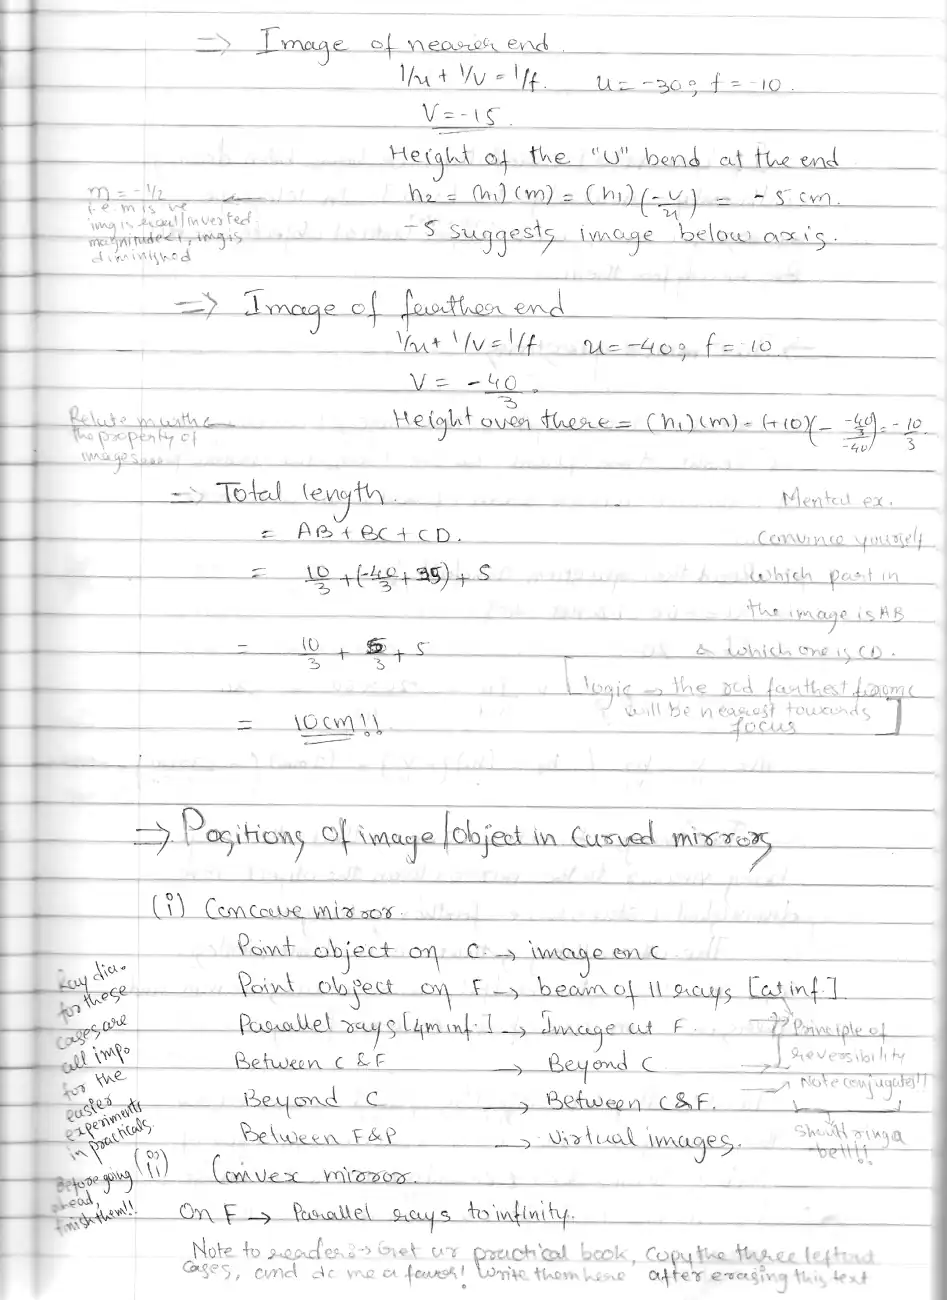 => Image of nearer end.
1/u + 1/v = 1/f. u = -30; f = -10.
V = -15.
Height of the "U" bend at the end
h2 = (h1)(m) = (h1)(-v/u) = -5 cm.
-5 suggests image below axis.
m = -1/2
i.e. m is ve
img is real/inverted
magnitude<1, img is
diminished
=> Image of farther end
1/u + 1/v = 1/f u = -40; f = -10
V = -40/3.
Height over there = (h1)(m) = (+10)(- (-40/3)/-40) = -10/3.
Relate m with
the property of
images
=> Total length.
= AB + BC + CD.
= 10/3 + (-40/3 + 15) + 5
= 10/3 + 5/3 + 5
= 10cm!!
Mental ex.
Convince yourself
Which part in
the image is AB
& which one is CD.
[logic → the rod farthest from C
will be nearest towards
focus]
=> Positions of image/object in curved mirrors
(i) Concave mirror.
Point object on C → image on C
Point object on F → beam of || rays [at inf.]
Parallel rays [4m inf.] → Image at F.
Between C & F → Beyond C
Beyond C → Between C & F.
Between F & P → Virtual images.
Principle of
reversibility
Note conjugates!!
should ring a
bell!!
Ray dia.
for these
cases are
all impo
for the
easier
experiments
in practicals.
Before going
ahead,
finish them!!
(ii) Convex mirror.
On F → Parallel rays to infinity.
Note to readers:→ Get ur practical book, Copy the three leftout
cases, and do me a favor! Write them here after erasing this text